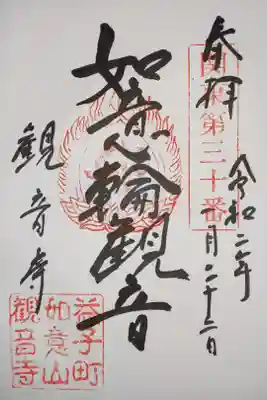 奉拝
関東第三十番
令和二年
月二十二日
如意輪観音
観音寺
益子町
如意山
観音寺